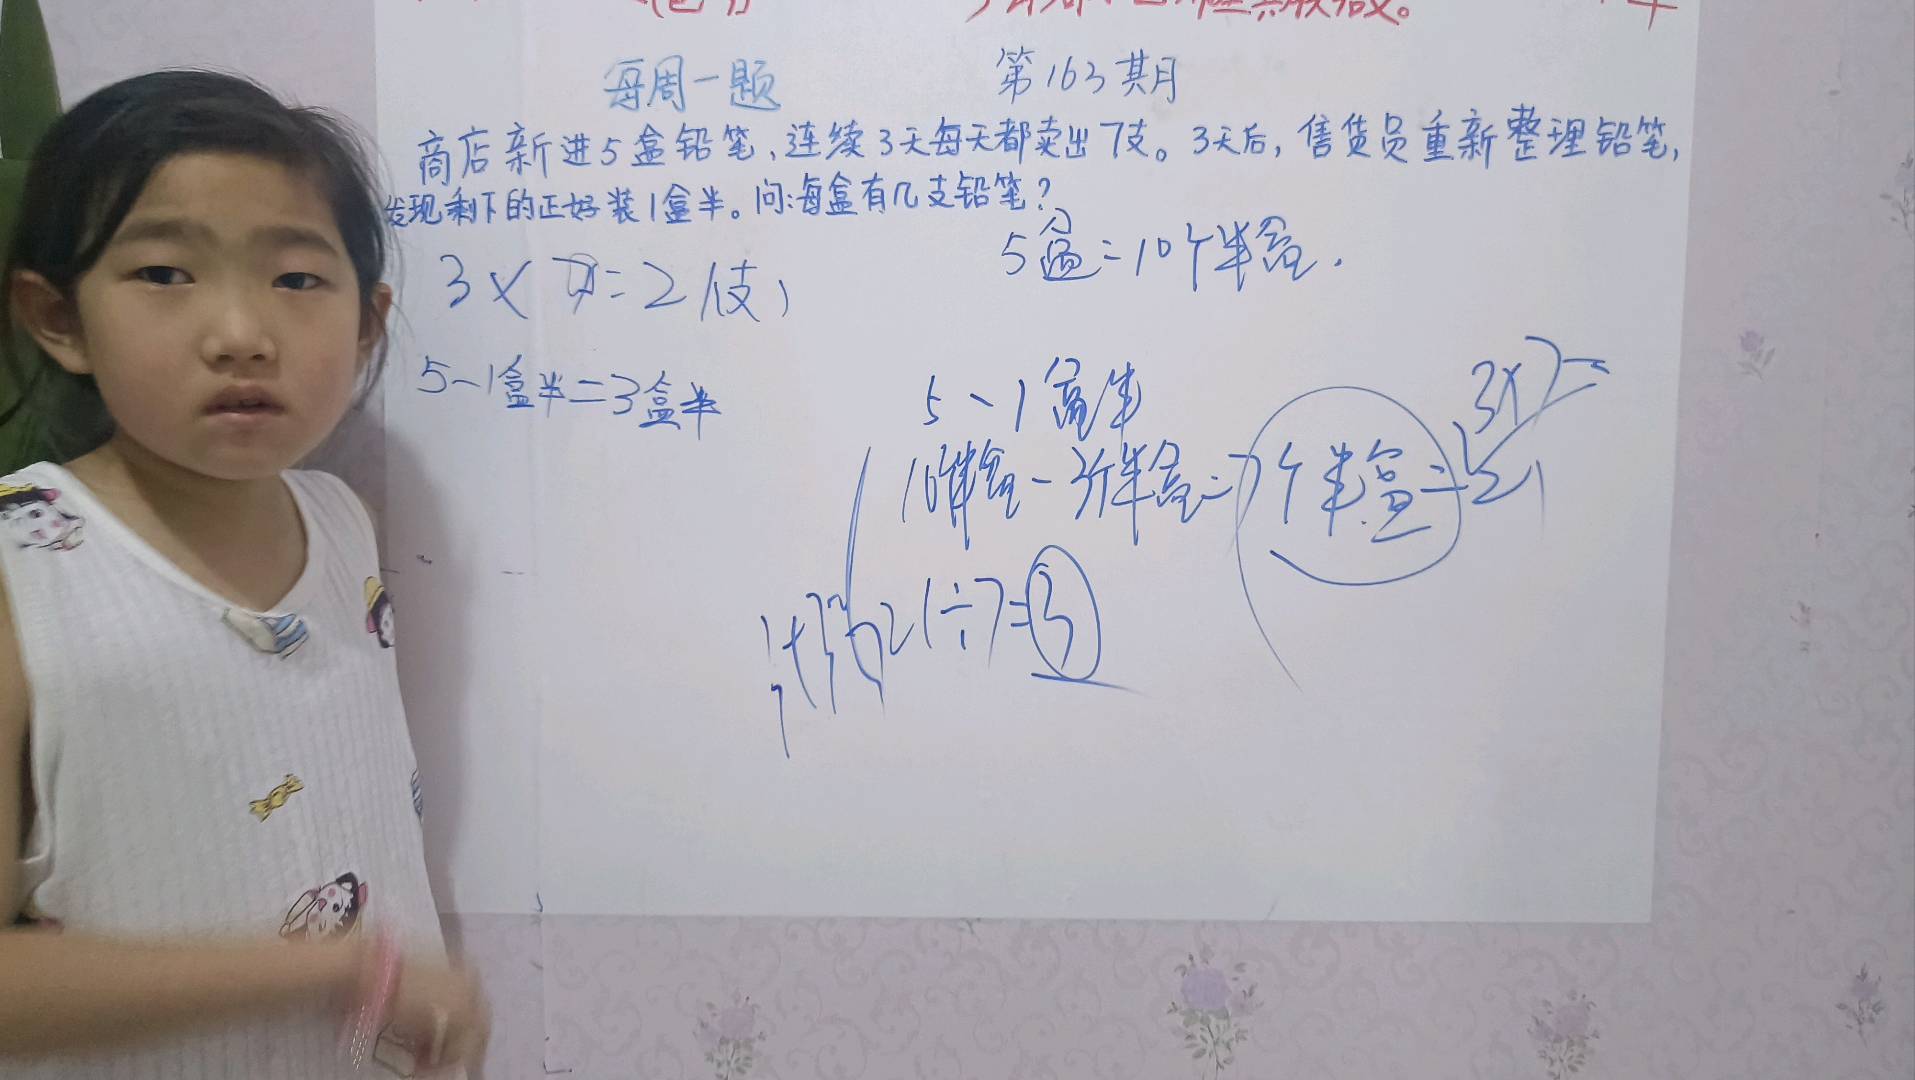 每周一题 第163期
商店新进5盒铅笔,连续3天每天都卖出7支。3天后,售货员重新整理铅笔,
发现剩下的正好装1盒半。问:每盒有几支铅笔?
5盒=10个半盒.
3×7=21(支)
5-1盒半=3盒半
5-1盒半
3×7=
10个半盒-3个半盒=7个半盒=21
21÷7=3